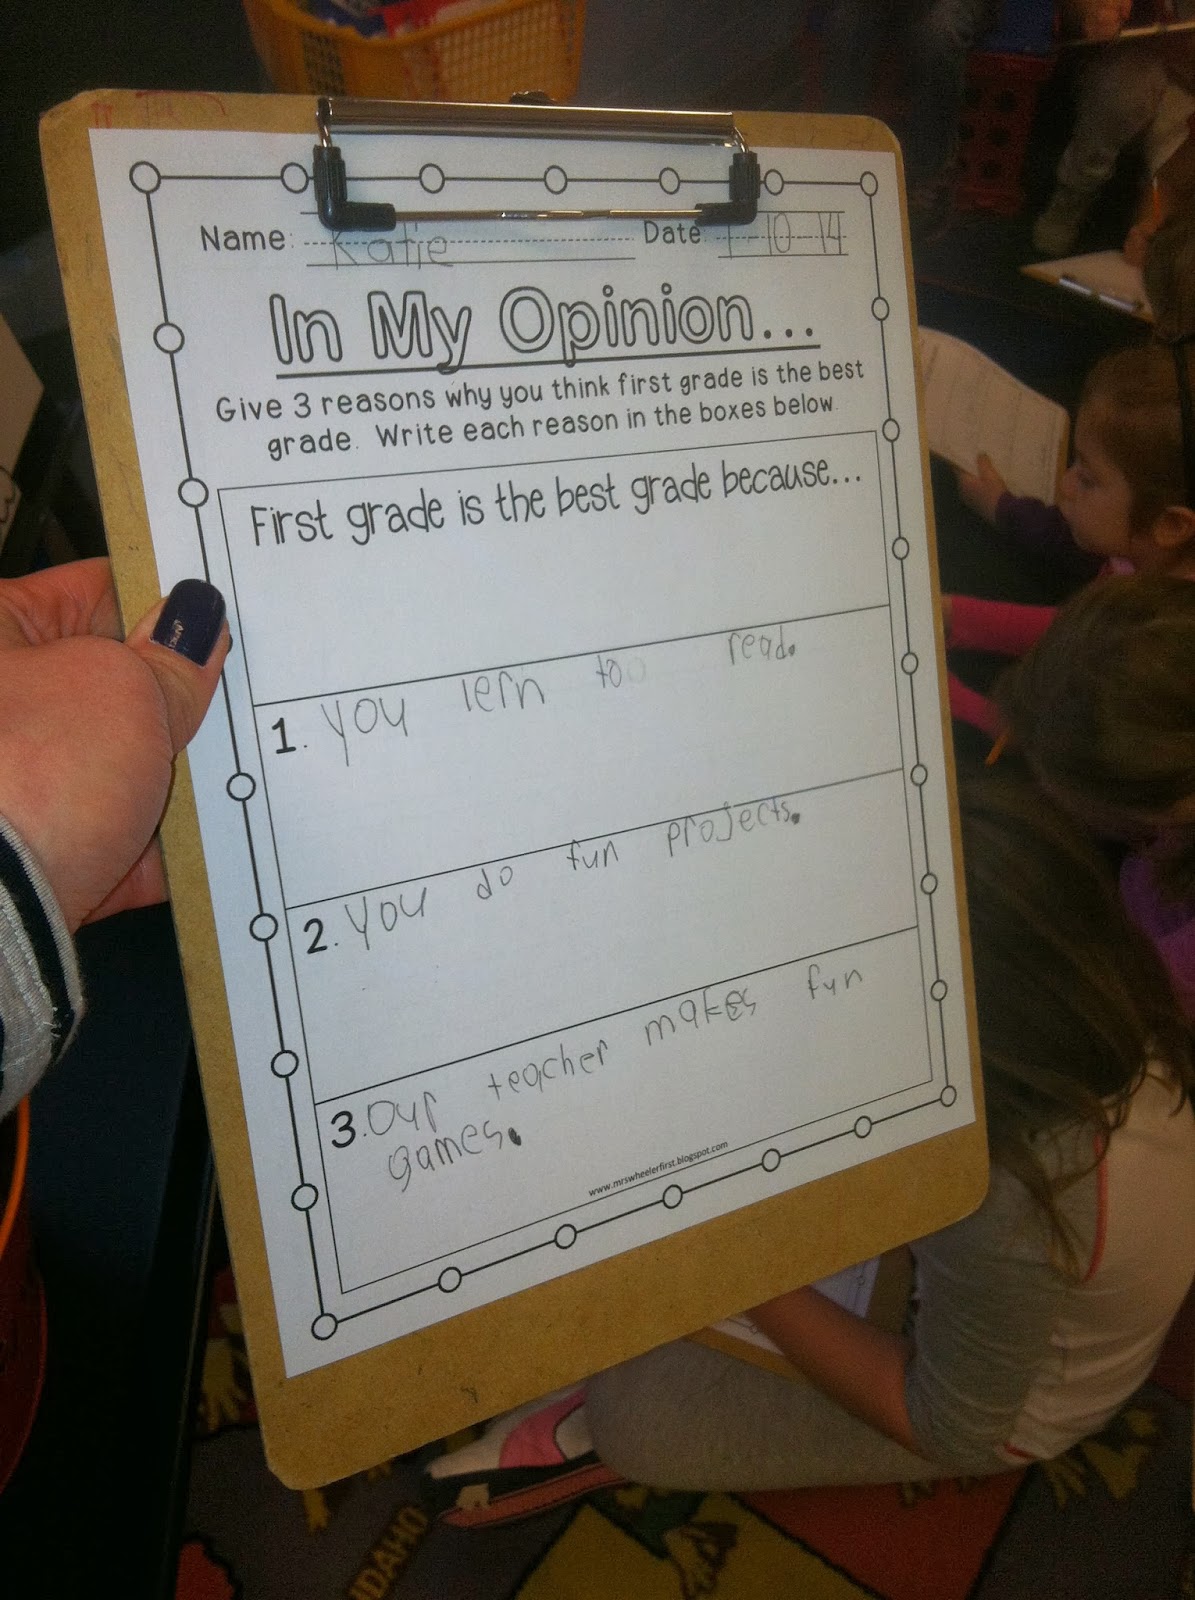 Name: Katie Date: 1-10-14
In My Opinion...
Give 3 reasons why you think first grade is the best
grade. Write each reason in the boxes below.
First grade is the best grade because...
1. you lern to read.
2. you do fun projects.
3. our teacher makes fun
games.
www.mrswheelerfirst.blogspot.com
IDAHO